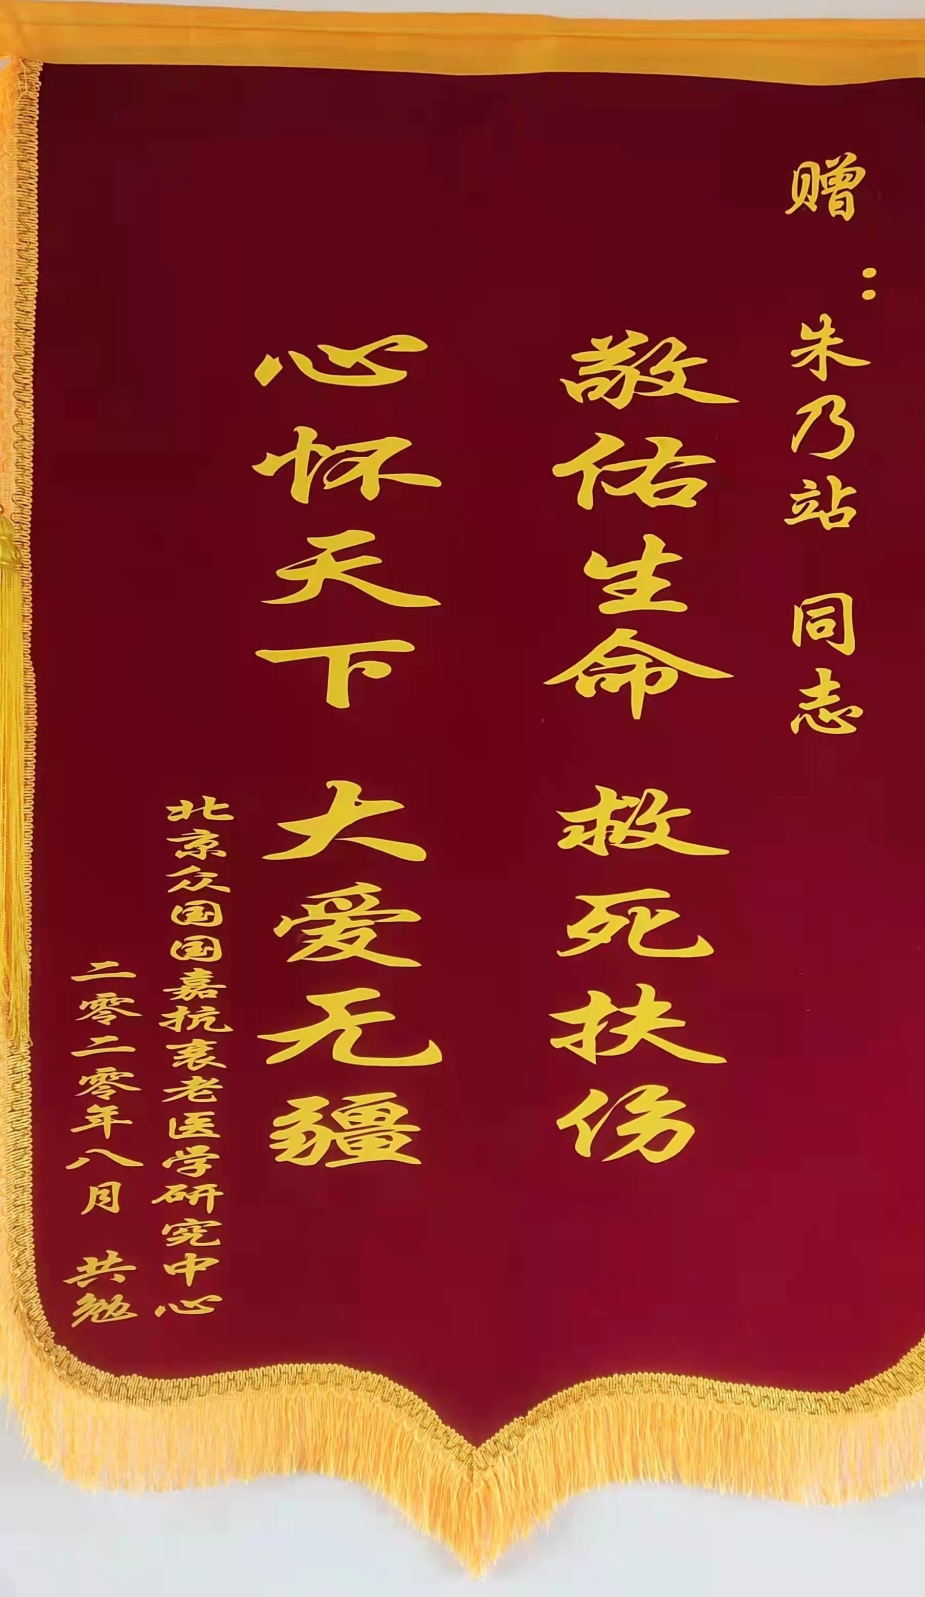 赠：朱乃站 同志
敬佑生命 救死扶伤
心怀天下 大爱无疆
北京众国国嘉抗衰老医学研究中心
二零二零年八月 共勉